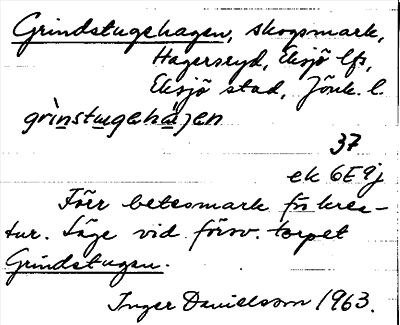 Grindstugehagen, skogsmark,
Hagersryd, Eksjö lfs,
Eksjö stad, Jönk. l.
grìnstugehàjen
37
ek 6E 9j
Förr betesmark för krea-
tur. Läge vid försv. torpet
Grindstugan.
Inger Danielsson 1963.